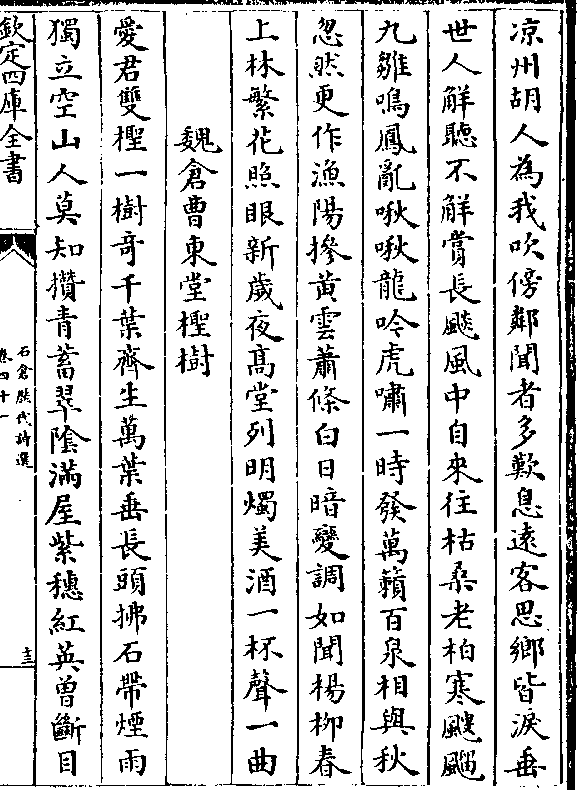 凉州胡人為我吹傍鄰聞者多歎息遠客思鄉皆淚垂
世人解聽不解賞長飈風中自來往枯桑老柏寒颼飀
九雛鳴鳳亂啾啾龍吟虎嘯一時發萬籟百泉相與秋
忽然更作漁陽摻黄雲蕭條白日暗變調如聞楊柳春
上林繁花照眼新歲夜髙堂列明燭美酒一杯聲一曲
魏倉曹東堂檉樹
愛君雙檉一樹竒千葉齊生萬葉垂長頭拂石帶煙雨
獨立空山人莫知攢青蓄翠陰滿屋紫穗紅英曽斷目
欽定四庫全書
石倉歷代詩選
卷四十一
十三